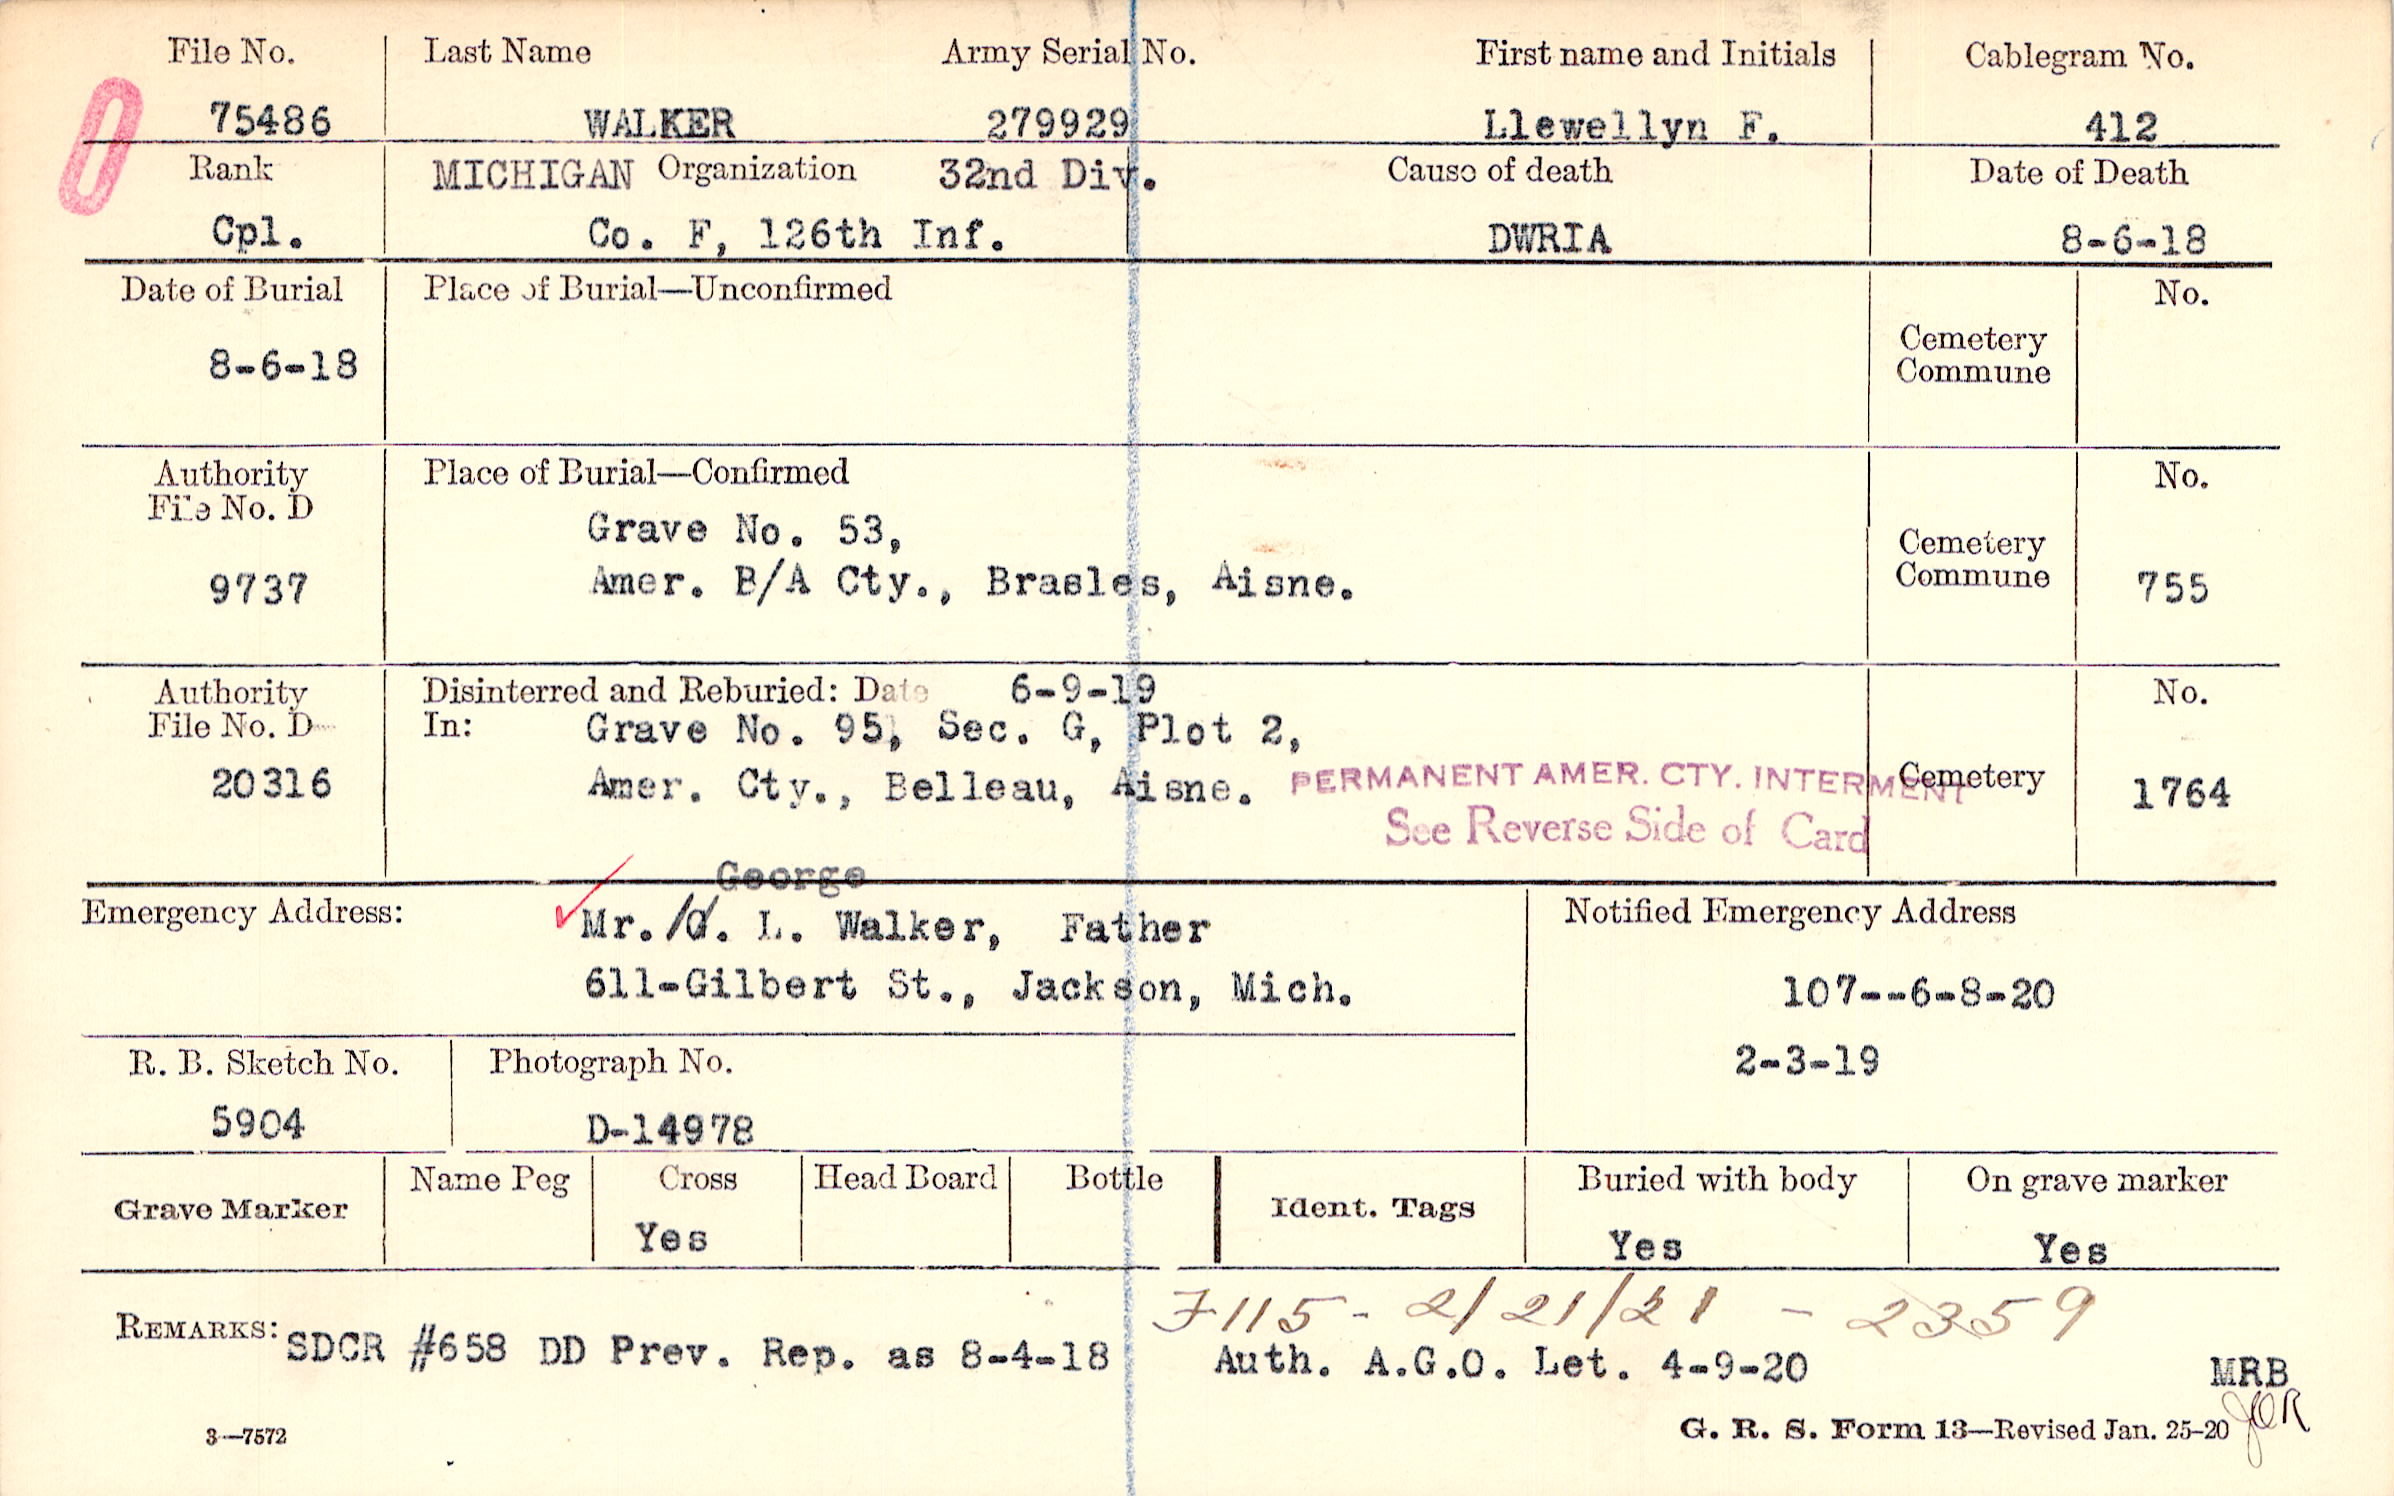 File No. Last Name Army Serial No. First name and Initials Cablegram No.
75486 WALKER 279929 Llewellyn F. 412
Rank MICHIGAN Organization 32nd Div. Cause of death Date of Death
Cpl. Co. F, 126th Inf. DWRIA 8-6-18
Date of Burial Place of Burial—Unconfirmed No.
8-6-18 Cemetery
Commune
Authority Place of Burial—Confirmed No.
File No. D
Grave No. 53,
Cemetery
9737 Amer. B/A Cty., Brasles, Aisne. Commune 755
Authority Disinterred and Reburied: Date 6-9-19 No.
File No. D In: Grave No. 95, Sec. G, Plot 2,
20316 Amer. Cty., Belleau, Aisne. PERMANENT AMER. CTY. INTERMENT Cemetery 1764
See Reverse Side of Card
George
Emergency Address: Mr. G. L. Walker, Father Notified Emergency Address
611-Gilbert St., Jackson, Mich. 107--6-8-20
R. B. Sketch No. Photograph No. 2-3-19
5904 D-14978
Grave Marker Name Peg Cross Head Board Bottle Ident. Tags Buried with body On grave marker
Yes Yes Yes
F115 - 2/21/21 - 2359
REMARKS: SDCR #658 DD Prev. Rep. as 8-4-18 Auth. A.G.O. Let. 4-9-20 MRB
JOR
3—7572 G. R. S. Form 13—Revised Jan. 25-20